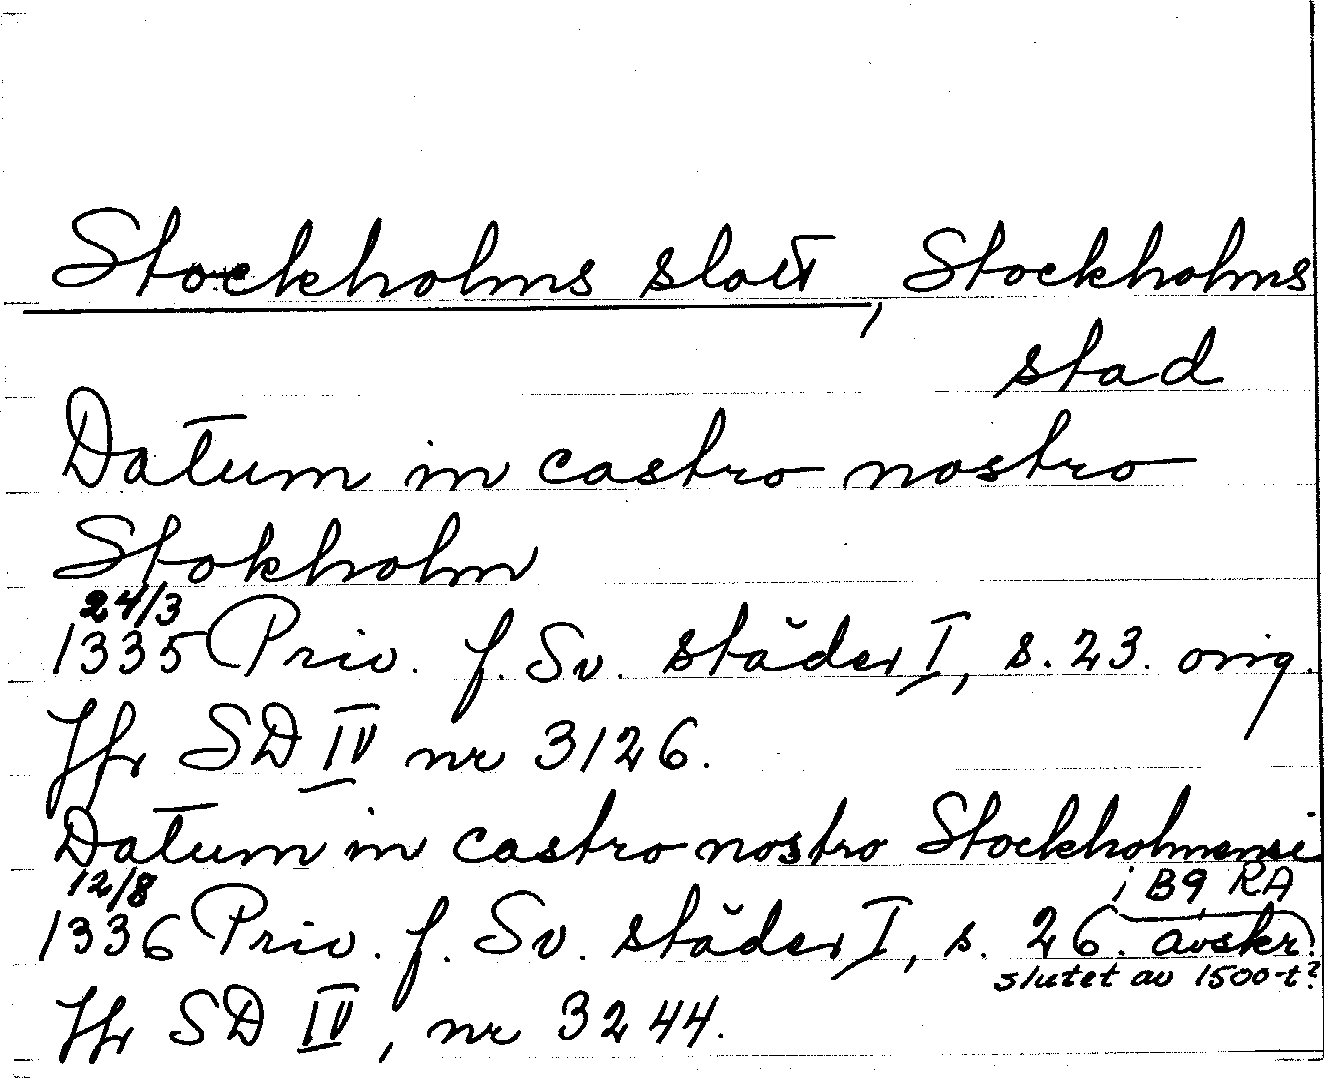 Stockholms slott, Stockholms
stad
Datum in castro nostro
Stokholm
24/3
1335 Priv. f. Sv. städer I, s. 23. orig.
Jfr SD IV nr 3126.
Datum in castro nostro Stockholmensi
12/8 i B9, RA
1336 Priv. f. Sv. städer I, s. 26. avskr.
slutet av 1500-t?
Jfr SD IV, nr 3244.